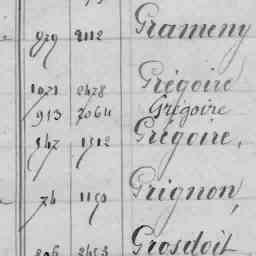 979 2112 Grameny
1021 2428 Grégoire
913 2064 Grégoire
547 1512 Grégoire,
74 1150 Grignon,
806 2453 Grosdoit